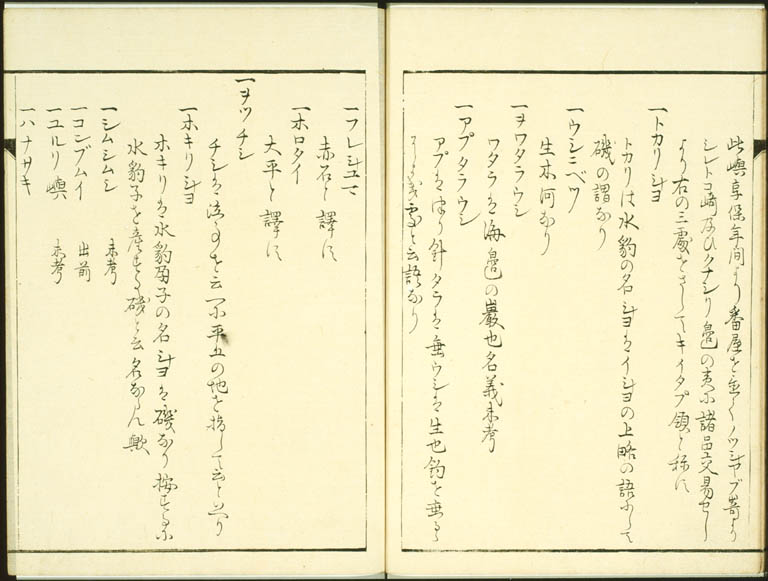 此嶼享保年間より番屋を立てノツシヤブ崎より
シレトコ崎及ひクナシリ邉の夷等諸品交易せし
より右の三處をさしてキイタプ領と称す
一トカリシヨ
トカリは水豹の名シヨはイシヨの上略の語にして
磯の謂なり
一ウシニベツ
生木河なり
一ヲワタラウシ
ワタラは海邉の巖也名義未考
一アプタラウシ
アプは釣針タラは垂ウシは生也釣を垂るゝ
によき處と云語なり
一フレシユマ
赤石と譯す
一ホロタイ
大平と譯す
一ヲツチシ
チシは泣事を云又平丘の地を指して云と云り
一ホキリシヨ
ホキリは水豹胎子の名シヨは磯なり按するに
水豹子を産する磯と云名ならん歟
一シムシムシ 未考
一コンブムイ 出前
一ユルリ嶼 未考
一ハナサキ